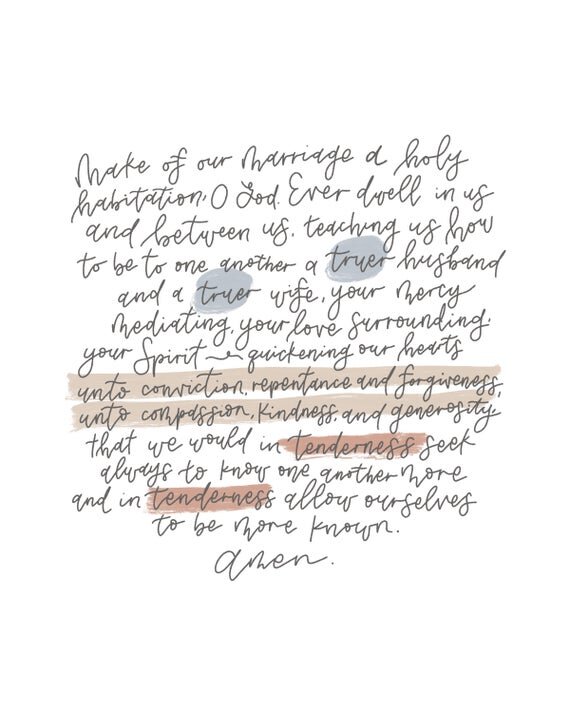 Make of our marriage a holy
habitation, O God. Ever dwell in us
and between us, teaching us how
to be to one another a truer husband
and a truer wife, your mercy
mediating, your love surrounding,
your Spirit quickening our hearts
unto conviction, repentance and forgiveness,
unto compassion, kindness, and generosity,
that we would in tenderness seek
always to know one another more
and in tenderness allow ourselves
to be more known.
amen.